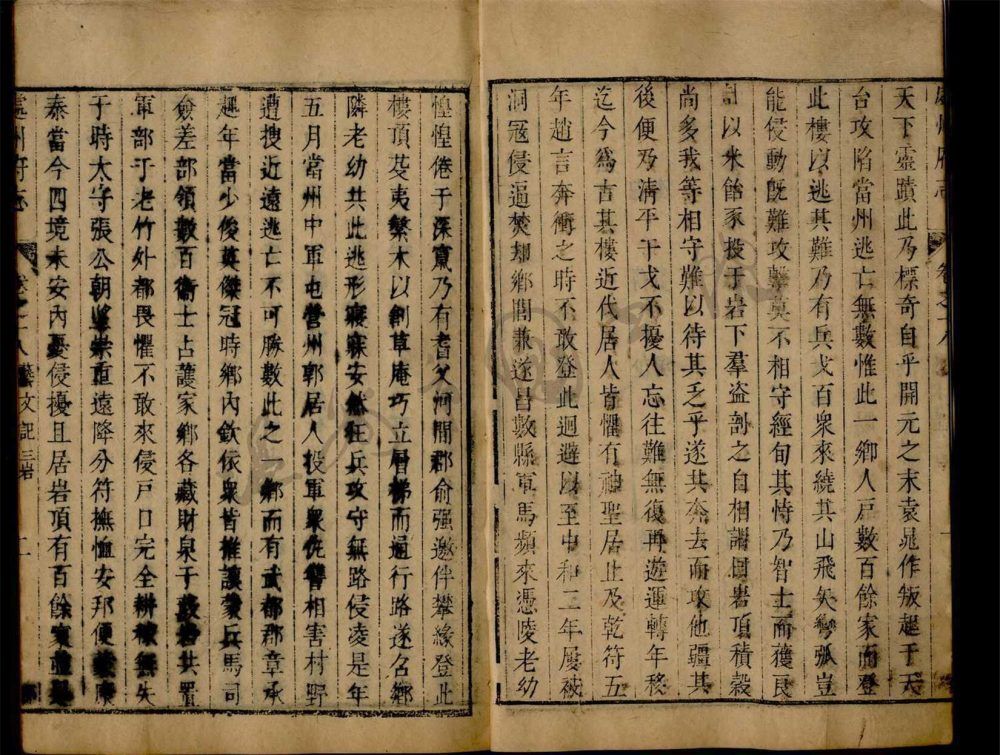 天下靈蹟此乃標奇自乎開元之末袁晁作叛起于天
台攻陷當州逃亡無數惟此一鄉人戸數百餘家而登
此樓以逃其難乃有兵戈百衆來繞其山飛矢彎弧豈
能侵動旣難攻擊莫不相守經旬其恃乃智士而獲良
計以米飴豕投于岩下羣盜剖之自相謂曰岩頂積穀
尚多我等相守難以待其乏乎遂其奔去而攻他疆其
後便乃清平干戈不擾人忘往難無復再遊運轉年移
迄今爲吉其樓近代居人皆懼有神聖居止及乾符五
年趙言奔衝之時不敢登此迴避以至中和二年屢被
洞冦侵逼焚却鄉閭兼遂昌數縣軍馬頻來憑陵老幼
惶惶倦于深竄乃有耆父河間郡俞强邀伴攀緣登此
樓頂芟夷繁木以創草庵巧立層梯而通行路遂名鄉
隣老幼共此逃形寢寐安然狂兵攻守無路侵凌是年
五月當州中軍屯營州郭居人投軍衆仇讐相害村野
遭搜近遠逃亡不可勝數此之一鄉而有武都郡章承
趣年當少後英傑冠時鄉內欽依衆皆推讓蒙兵馬司
僉差部領數百衛士占護家鄉各藏財泉于叢共置
軍部于老竹外都畏懼不敢來侵戸口完全耕無失
于時太守張公朝崇重遠降分符撫恤安邦便
泰當今四境未安內憂侵擾且居岩頂有百餘
處州府志 卷之十八 藝文記 三岩 二